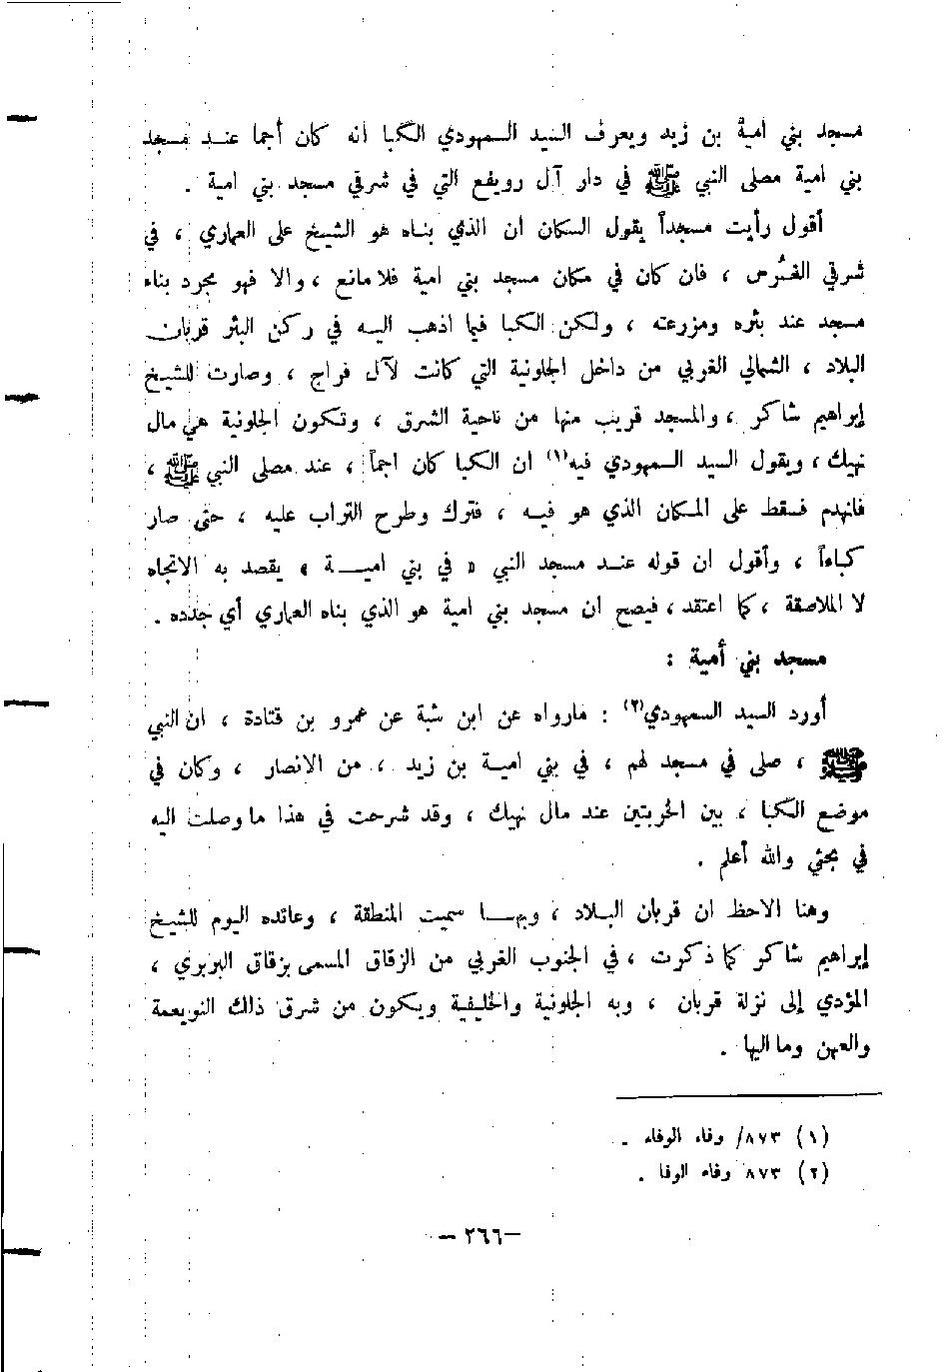 مسجد بني امية بن زيد ويعرف السيد السمهودي الكبا انه كان أجما عنــد مسجد
بني امية مصلى النبي ﷺ في دار آل رويفع التي في شرقي مسجد بني امية .
أقول رأيت مسجداً يقول السكان ان الذي بناه هو الشيخ على العماري ، في
شرقي الغُرس ، فان كان في مكان مسجد بني امية فلا مانع ، والا فهو مجرد بناء
مسجد عند بئره ومزرعته ، ولكن الكبا فيما اذهب اليـه في ركن البئر قربان
البلاد ، الشمالي الغربي من داخل الجلونية التي كانت لآل فراج ، وصارت للشيخ
إبراهيم شاكر ، والمسجد قريب منها من ناحية الشرق ، وتكون الجلونية هي مال
نهيك ، ويقول السيد السمهودي فيه(١) ان الكبا كان اجماً ، عند مصلى النبي ﷺ ،
فانهدم فسقط على المكان الذي هو فيـه ، فترك وطرح التراب عليه ، حتى صار
كباءاً ، وأقول ان قوله عنـد مسجد النبي « في بني اميـــة » يقصد به الاتجاه
لا الملاصقة ، كما اعتقد ، فيصح ان مسجد بني امية هو الذي بناه العماري أي جدده .
مسجد بني أمية :
أورد السيد السمهودي(٢) : مارواه عن ابن شبة عن عمرو بن قتادة ، ان النبي
ﷺ ، صلى في مسجد لهم ، في بني اميـة بن زيد ، من الانصار ، وكان في
موضع الكبا ، بين الخربتين عند مال نهيك ، وقد شرحت في هذا ما وصلت اليه
في بحثي والله أعلم .
وهنا الاحظ ان قربان البـلاد ، وبهـــا سميت المنطقة ، وعائده اليوم للشيخ
إبراهيم شاكر كما ذكرت ، في الجنوب الغربي من الزقاق المسمى بزقاق البربري ،
المؤدي إلى نزلة قربان ، وبه الجلونية والخليفية ويكون من شرق ذلك النويعمة
والعهن وما اليها .
(١) ٨٧٣/ وفاء الوفاء .
(٢) ٨٧٣ وفاء الوفا .
–٢٦٦ –